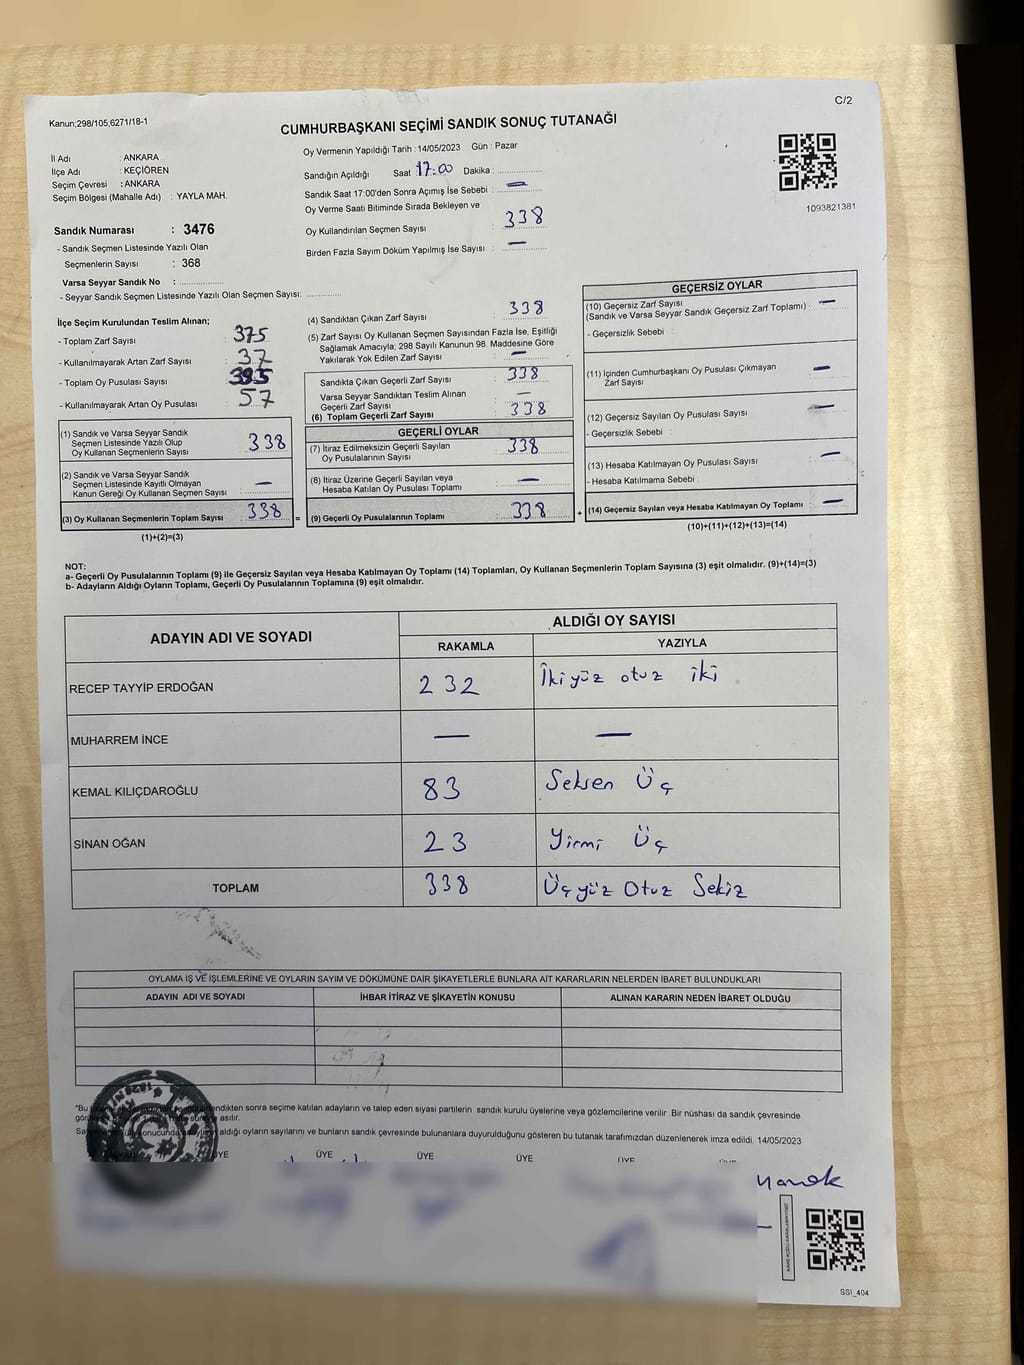 C/2
Kanun;298/105;6271/18-1
CUMHURBAŞKANI SEÇİMİ SANDIK SONUÇ TUTANAĞI
İl Adı : ANKARA
İlçe Adı : KEÇİÖREN
Seçim Çevresi : ANKARA
Seçim Bölgesi (Mahalle Adı) : YAYLA MAH.
Oy Vermenin Yapıldığı Tarih : 14/05/2023 Gün : Pazar
Sandığın Açıldığı Saat 17:00 Dakika :
Sandık Saat 17:00'den Sonra Açımış İse Sebebi : —
Oy Verme Saati Bitiminde Sırada Bekleyen ve
Oy Kullandırılan Seçmen Sayısı : 338
Birden Fazla Sayım Döküm Yapılmış İse Sayısı : —
1093821381
Sandık Numarası : 3476
- Sandık Seçmen Listesinde Yazılı Olan
Seçmenlerin Sayısı : 368
Varsa Seyyar Sandık No :
- Seyyar Sandık Seçmen Listesinde Yazılı Olan Seçmen Sayısı:
İlçe Seçim Kurulundan Teslim Alınan;
- Toplam Zarf Sayısı : 375
- Kullanılmayarak Artan Zarf Sayısı : 37
- Toplam Oy Pusulası Sayısı : 395
- Kullanılmayarak Artan Oy Pusulası : 57
(1) Sandık ve Varsa Seyyar Sandık
Seçmen Listesinde Yazılı Olup
Oy Kullanan Seçmenlerin Sayısı : 338
(2) Sandık ve Varsa Seyyar Sandık
Seçmen Listesinde Kayıtlı Olmayan
Kanun Gereği Oy Kullanan Seçmen Sayısı : —
(3) Oy Kullanan Seçmenlerin Toplam Sayısı : 338 =
(1)+(2)=(3)
(4) Sandıktan Çıkan Zarf Sayısı : 338
(5) Zarf Sayısı Oy Kullanan Seçmen Sayısından Fazla İse, Eşitliği
Sağlamak Amacıyla; 298 Sayılı Kanunun 98. Maddesine Göre
Yakılarak Yok Edilen Zarf Sayısı : —
Sandıkta Çıkan Geçerli Zarf Sayısı : 338
Varsa Seyyar Sandıktan Teslim Alınan
Geçerli Zarf Sayısı : —
(6) Toplam Geçerli Zarf Sayısı : 338
GEÇERLİ OYLAR
(7) İtiraz Edilmeksizin Geçerli Sayılan
Oy Pusulalarının Sayısı : 338
(8) İtiraz Üzerine Geçerli Sayılan veya
Hesaba Katılan Oy Pusulası Toplamı : —
(9) Geçerli Oy Pusulalarının Toplamı : 338 +
GEÇERSİZ OYLAR
(10) Geçersiz Zarf Sayısı
(Sandık ve Varsa Seyyar Sandık Geçersiz Zarf Toplamı) : —
- Geçersizlik Sebebi :
(11) İçinden Cumhurbaşkanı Oy Pusulası Çıkmayan
Zarf Sayısı : —
(12) Geçersiz Sayılan Oy Pusulası Sayısı : —
- Geçersizlik Sebebi :
(13) Hesaba Katılmayan Oy Pusulası Sayısı : —
- Hesaba Katılmama Sebebi :
(14) Geçersiz Sayılan veya Hesaba Katılmayan Oy Toplamı : —
(10)+(11)+(12)+(13)=(14)
NOT:
a- Geçerli Oy Pusulalarının Toplamı (9) ile Geçersiz Sayılan veya Hesaba Katılmayan Oy Toplamı (14) Toplamları, Oy Kullanan Seçmenlerin Toplam Sayısına (3) eşit olmalıdır. (9)+(14)=(3)
b- Adayların Aldığı Oyların Toplamı, Geçerli Oy Pusulalarının Toplamına (9) eşit olmalıdır.
ADAYIN ADI VE SOYADI
ALDIĞI OY SAYISI
RAKAMLA YAZIYLA
RECEP TAYYİP ERDOĞAN 232 İkiyüz otuz iki
MUHARREM İNCE — —
KEMAL KILIÇDAROĞLU 83 Seksen Üç
SİNAN OĞAN 23 Yirmi Üç
TOPLAM 338 Üçyüz Otuz Sekiz
OYLAMA İŞ VE İŞLEMLERİNE VE OYLARIN SAYIM VE DÖKÜMÜNE DAİR ŞİKAYETLERLE BUNLARA AİT KARARLARIN NELERDEN İBARET BULUNDUKLARI
ADAYIN ADI VE SOYADI İHBAR İTİRAZ VE ŞİKAYETİN KONUSU ALINAN KARARIN NEDEN İBARET OLDUĞU
*Bu sonra seçime katılan adayların ve talep eden siyasi partilerin sandık kurulu üyelerine veya gözlemcilerine verilir. Bir nüshası da sandık çevresinde
asılır.
aldığı oyların sayılarını ve bunların sandık çevresinde bulunanlara duyurulduğunu gösteren bu tutanak tarafımızdan düzenlenerek imza edildi. 14/05/2023
ÜYE ÜYE ÜYE ÜYE
SSI_404